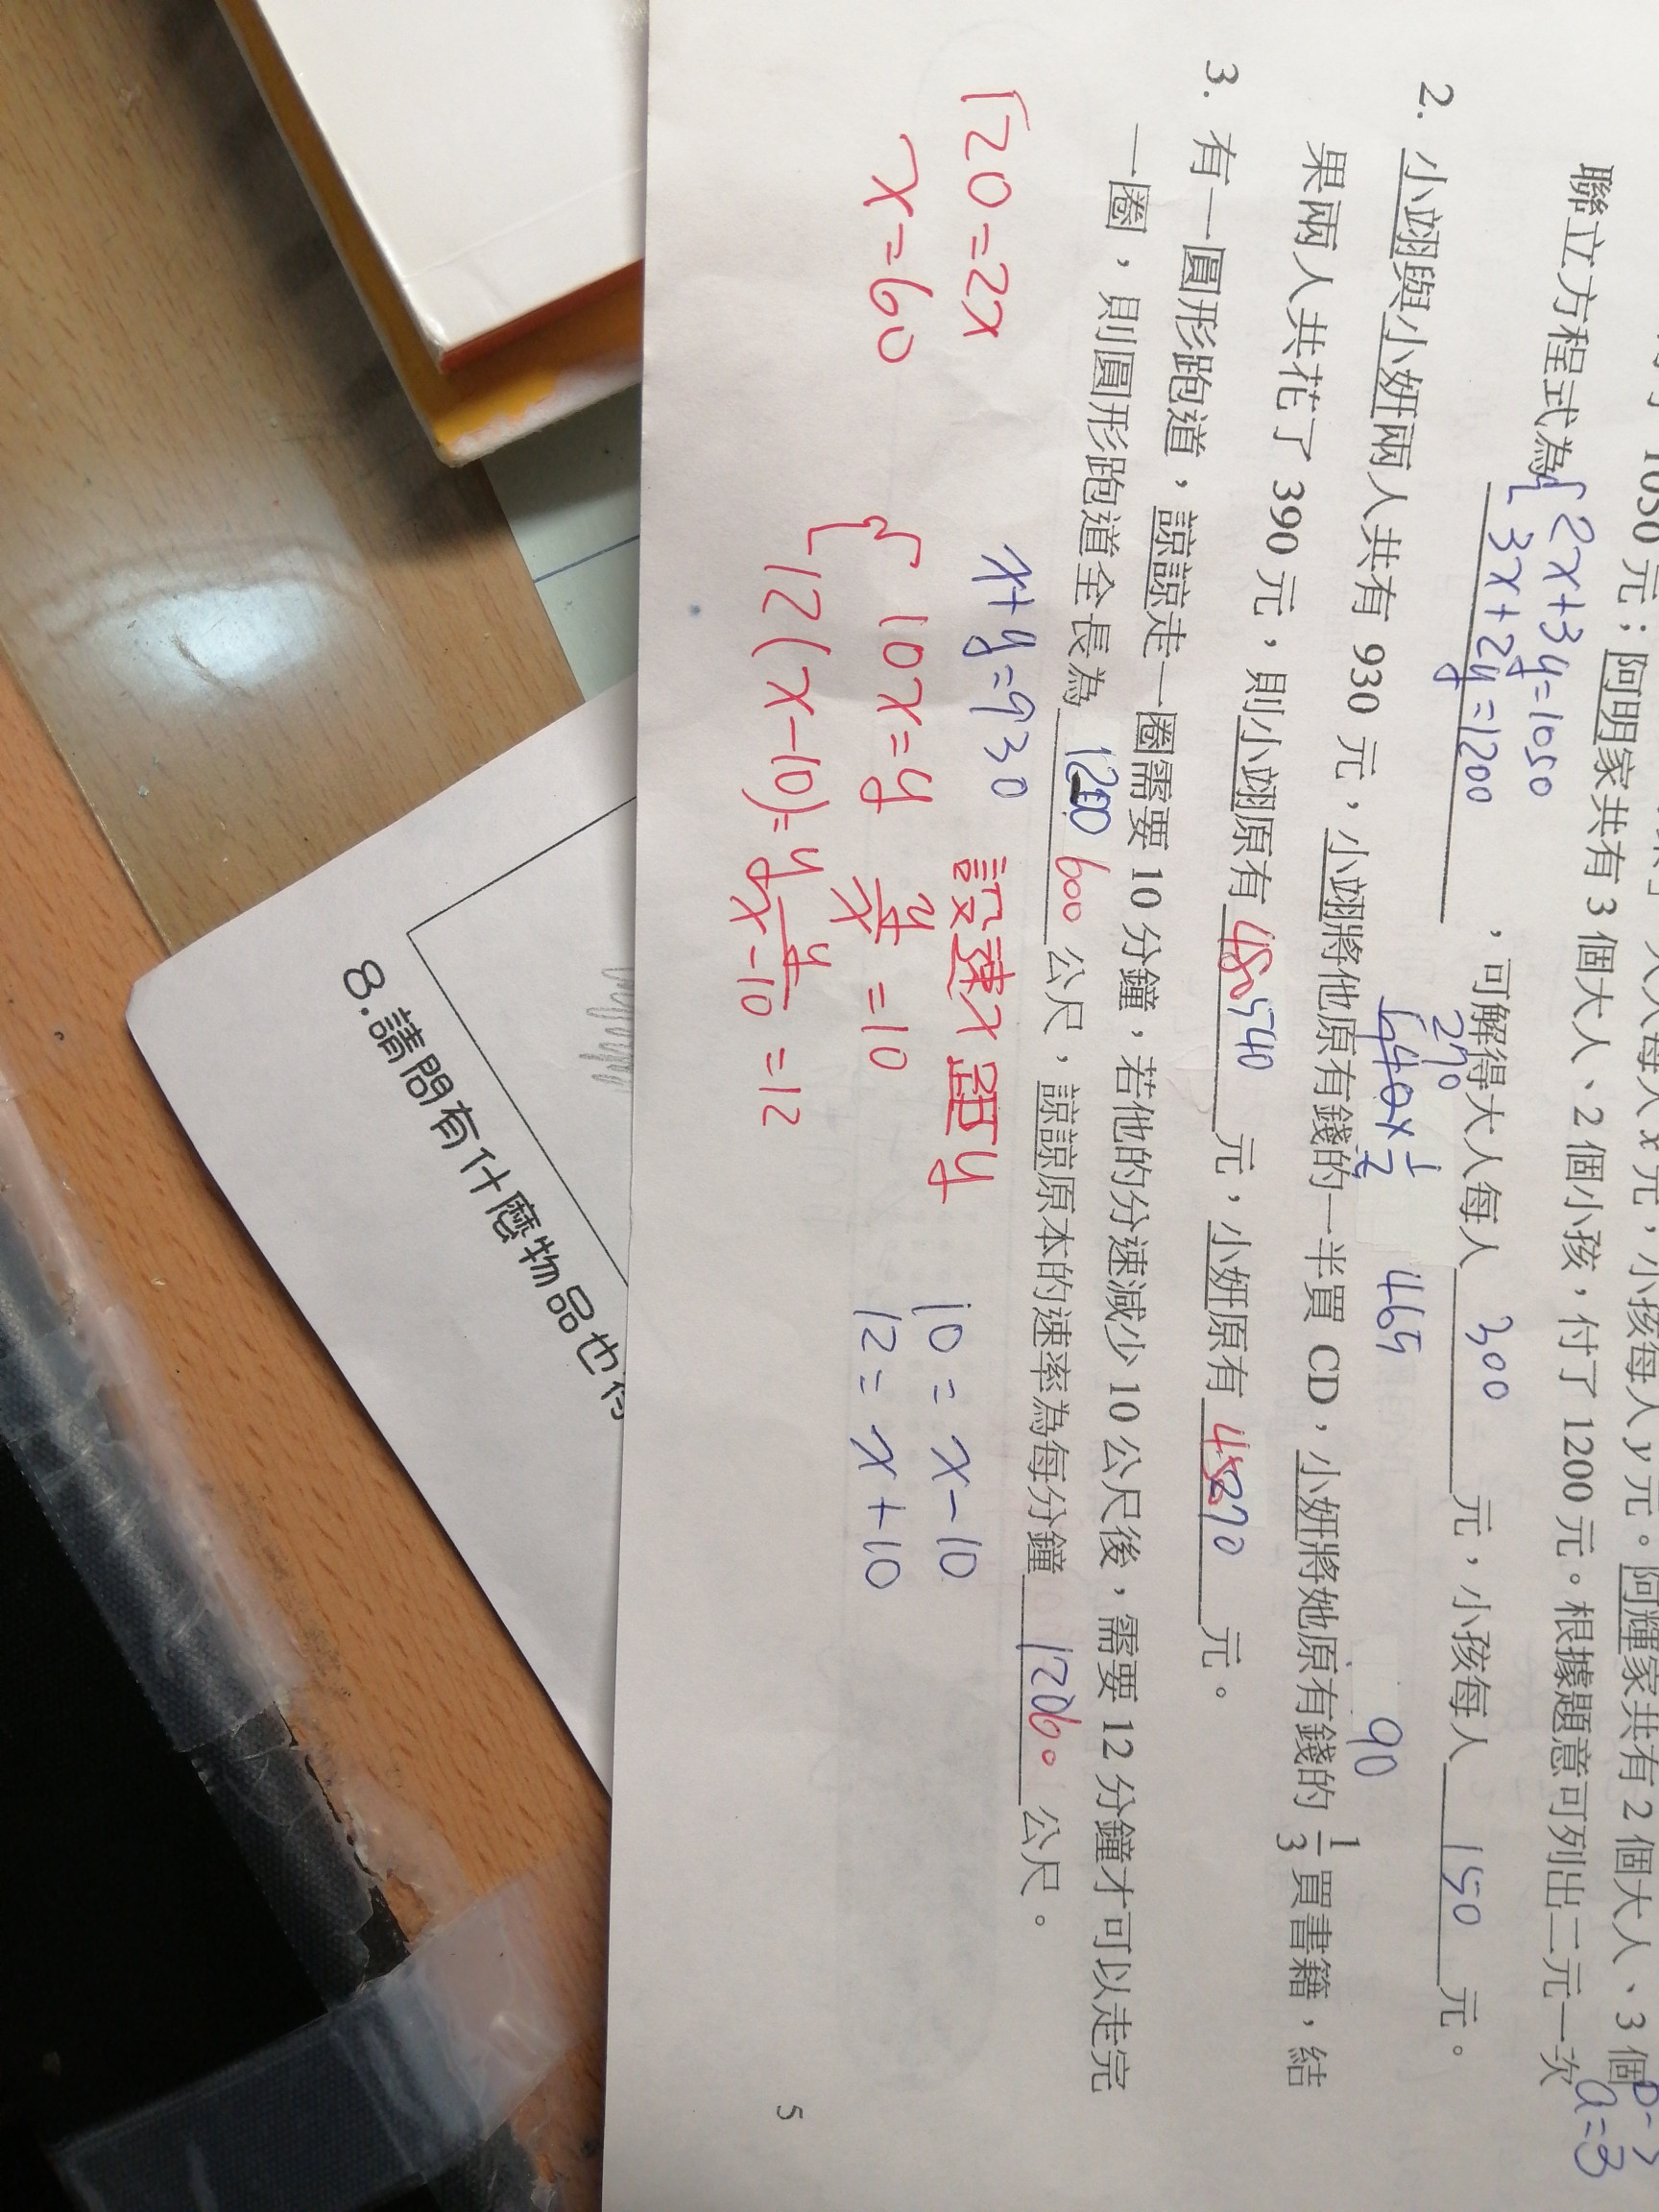 1050元；阿明家共有3個大人、2個小孩，付了1200元。根據題意可列出二元一次
聯立方程式為 { 2x+3y=1050
3x+2y=1200 ，可解得大人每人 300 元，小孩每人 150 元。
270
× 1/2
465
90
2. 小翊與小妍兩人共有 930 元，小翊將他原有錢的一半買 CD，小妍將她原有錢的 1/3 買書籍，結
果兩人共花了 390 元，則小翊原有 480 540 元，小妍原有 元。
3. 有一圓形跑道，諒諒走一圈需要 10 分鐘，若他的分速減少 10 公尺後，需要 12 分鐘才可以走完
一圈，則圓形跑道全長為 600 公尺，諒諒原本的速率為每分鐘 公尺。
120=2x
x=60
x+y=930
設速x 距y
{ 10x=y
12(x-10)=y
y/x =10
y/x-10 =12
10=x-10
12=x+10
5
8.請問有什麼物品也